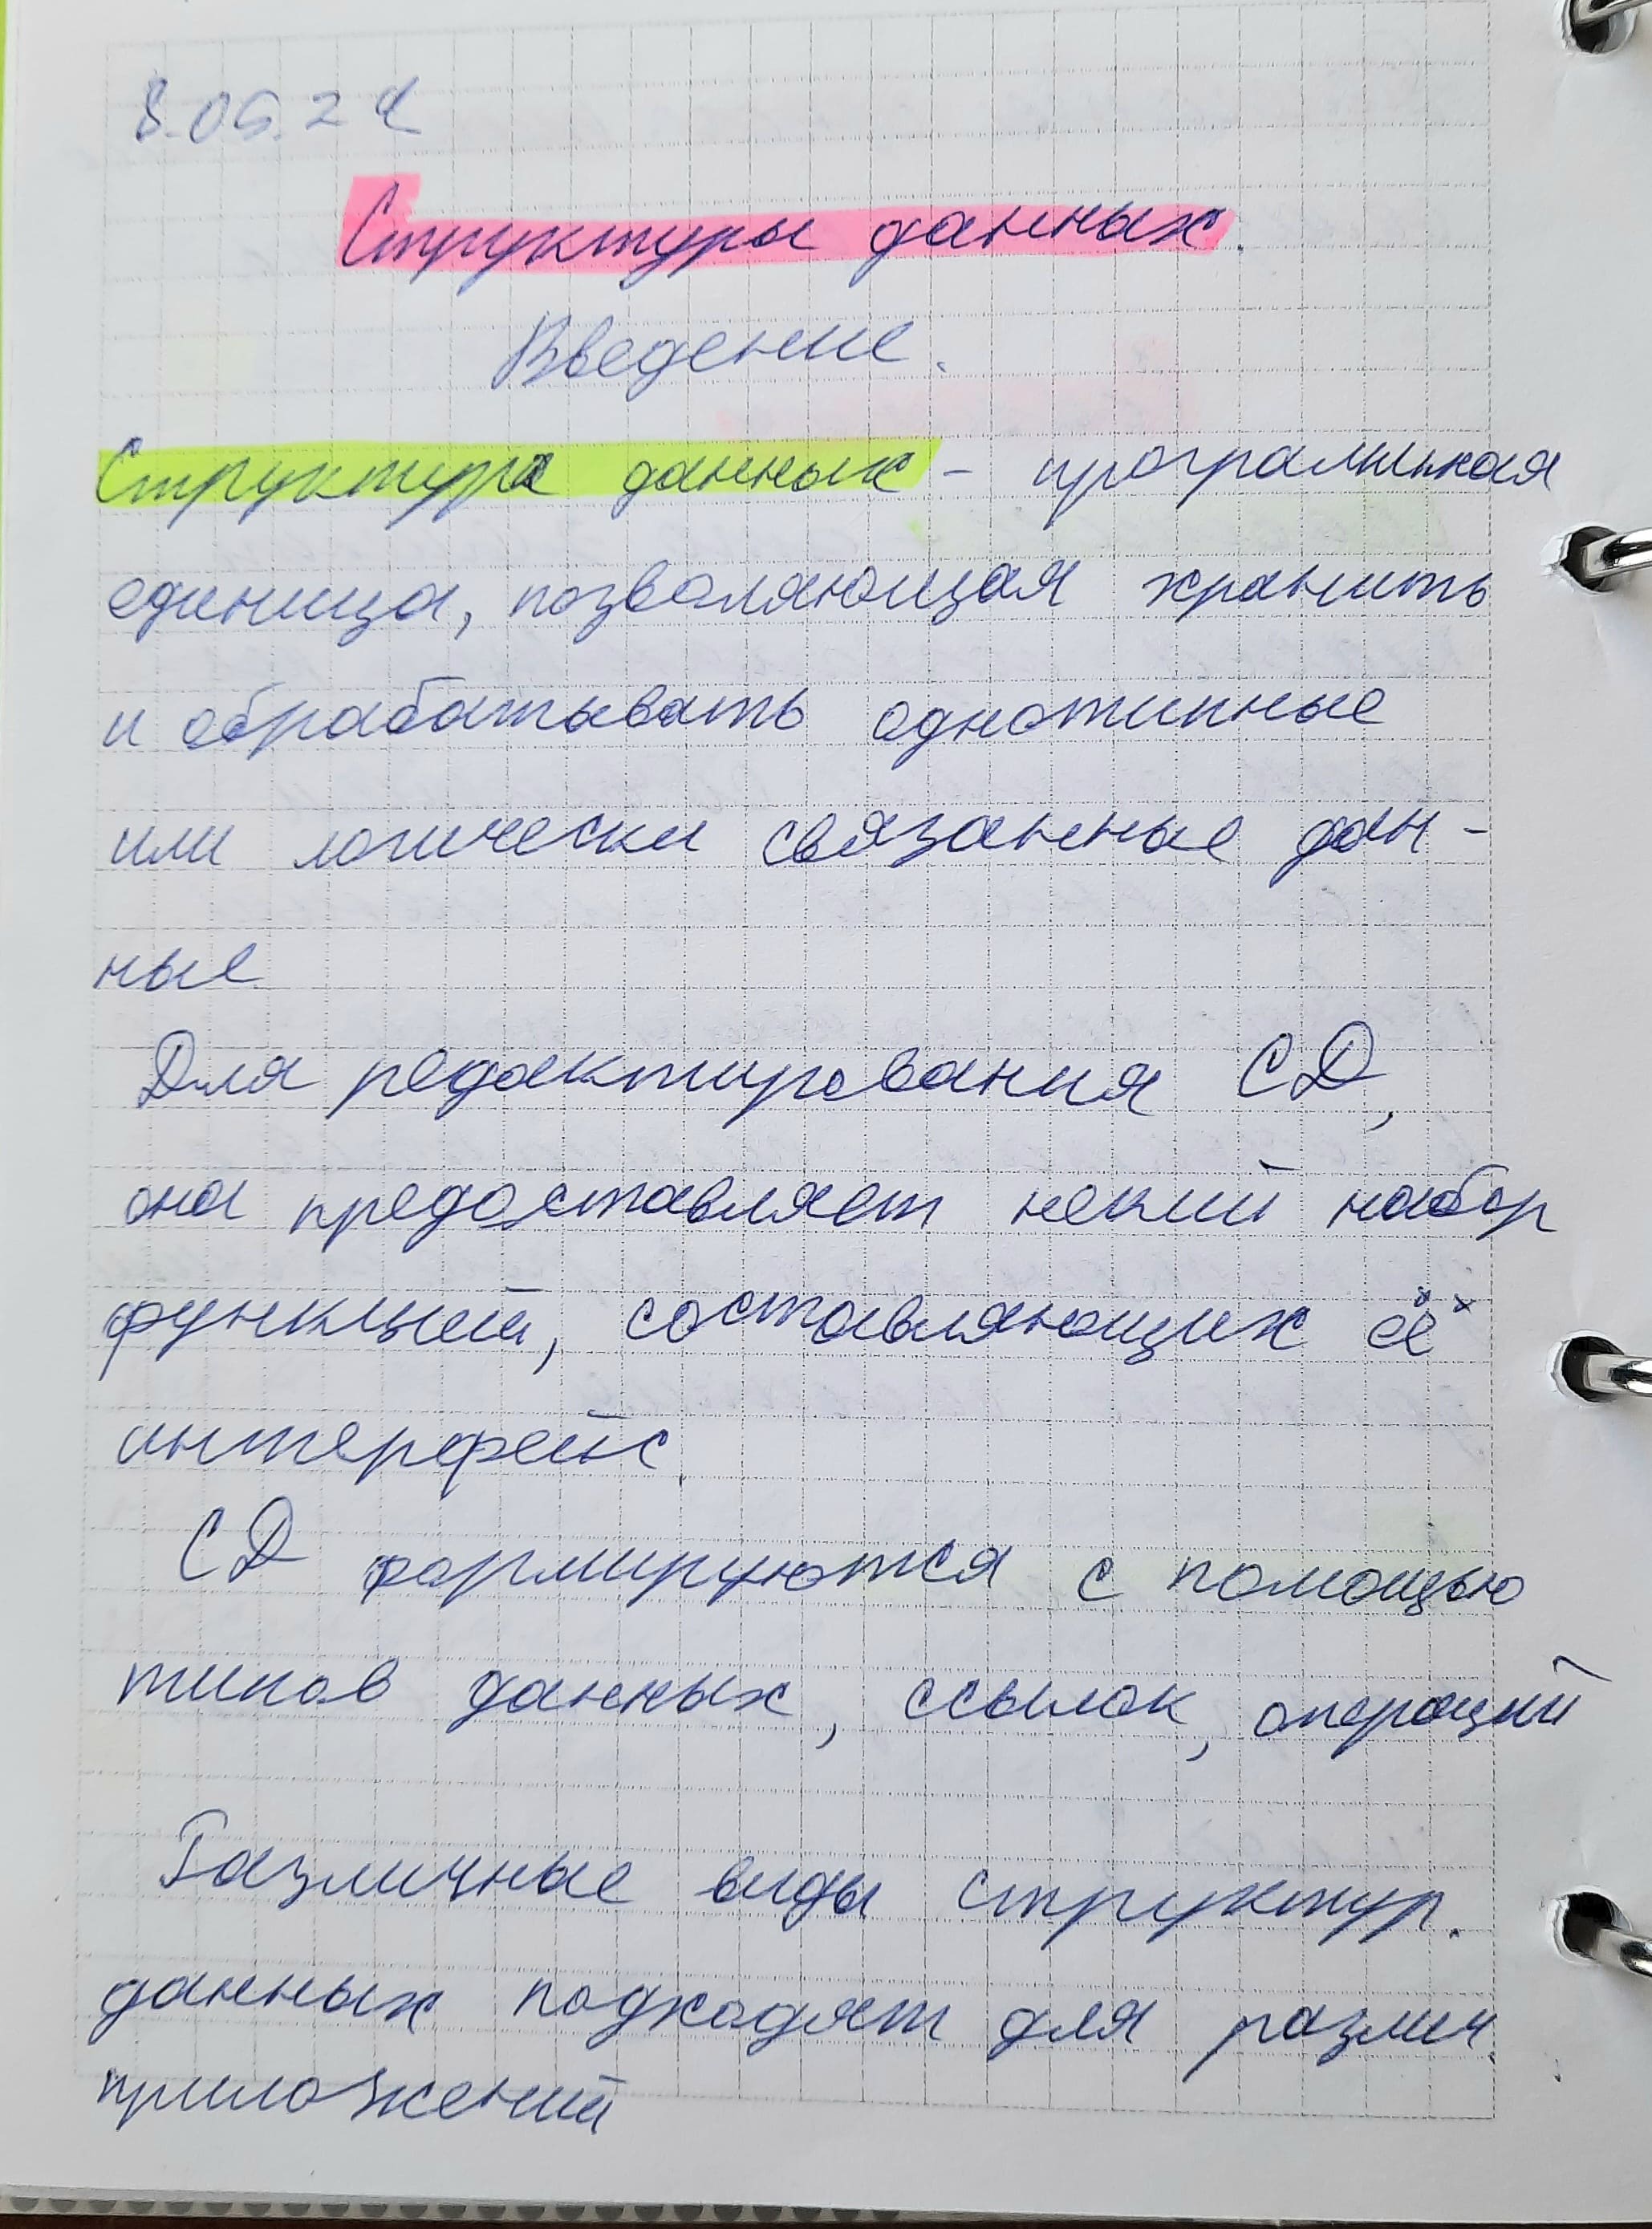 8.05.24
Структуры данных.
Введение.
Структура данных - програмнная
единица, позволяющая хранить
и обрабатывать однотипные
или логически связанные дан-
ные
Для редактирования СД,
она предоставляет некий набор
функций, составляющих её
интерфейс
СД формируются с помощью
типов данных, ссылок, операций
Различные виды структур.
данных подходят для различ.
приложений